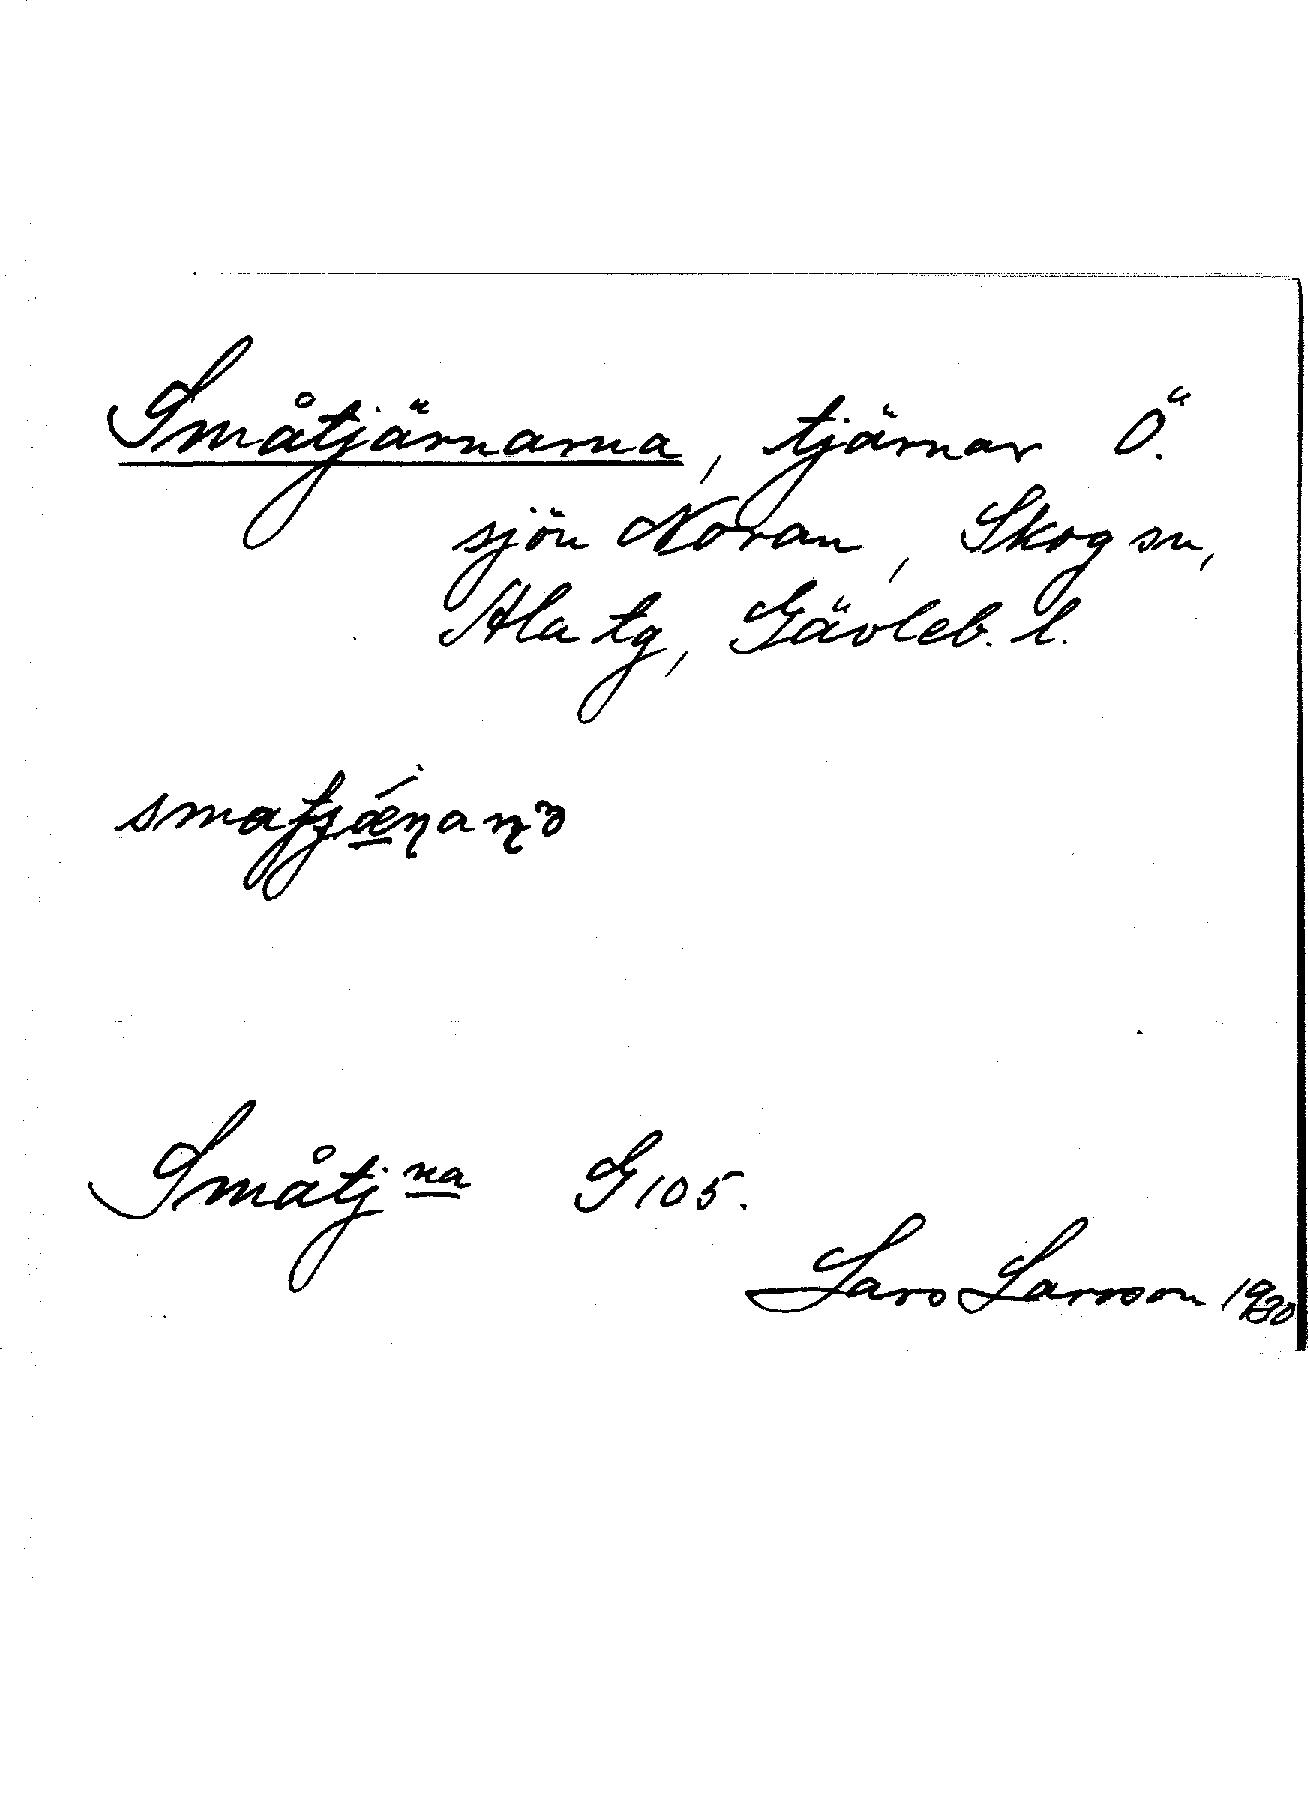 Småtjärnarna, tjärnar Ö.
sjön Noran, Skog sn,
Ala tg, Gävleb. l.
Småtj na G 105.
Lars Larsson 1930